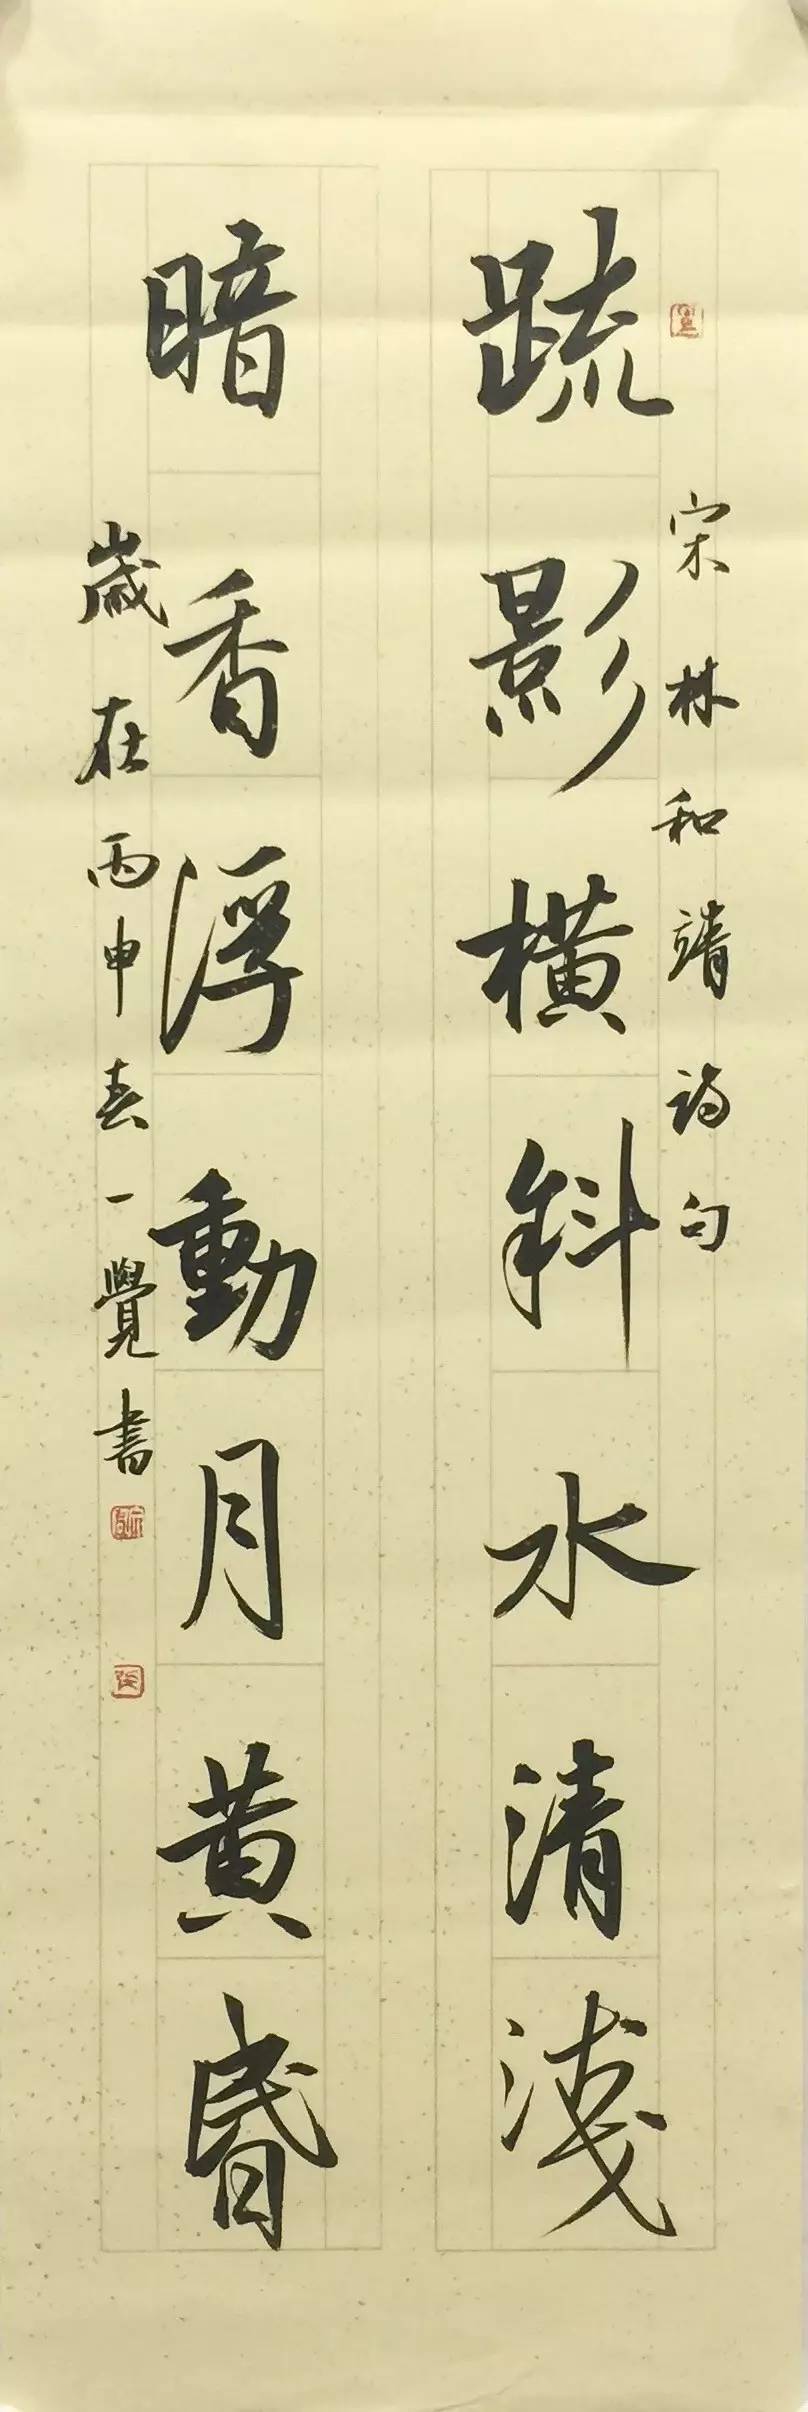 宋林和靖詩句
疏影橫斜水清淺
暗香浮動月黃昏
歲在丙申春一覺書